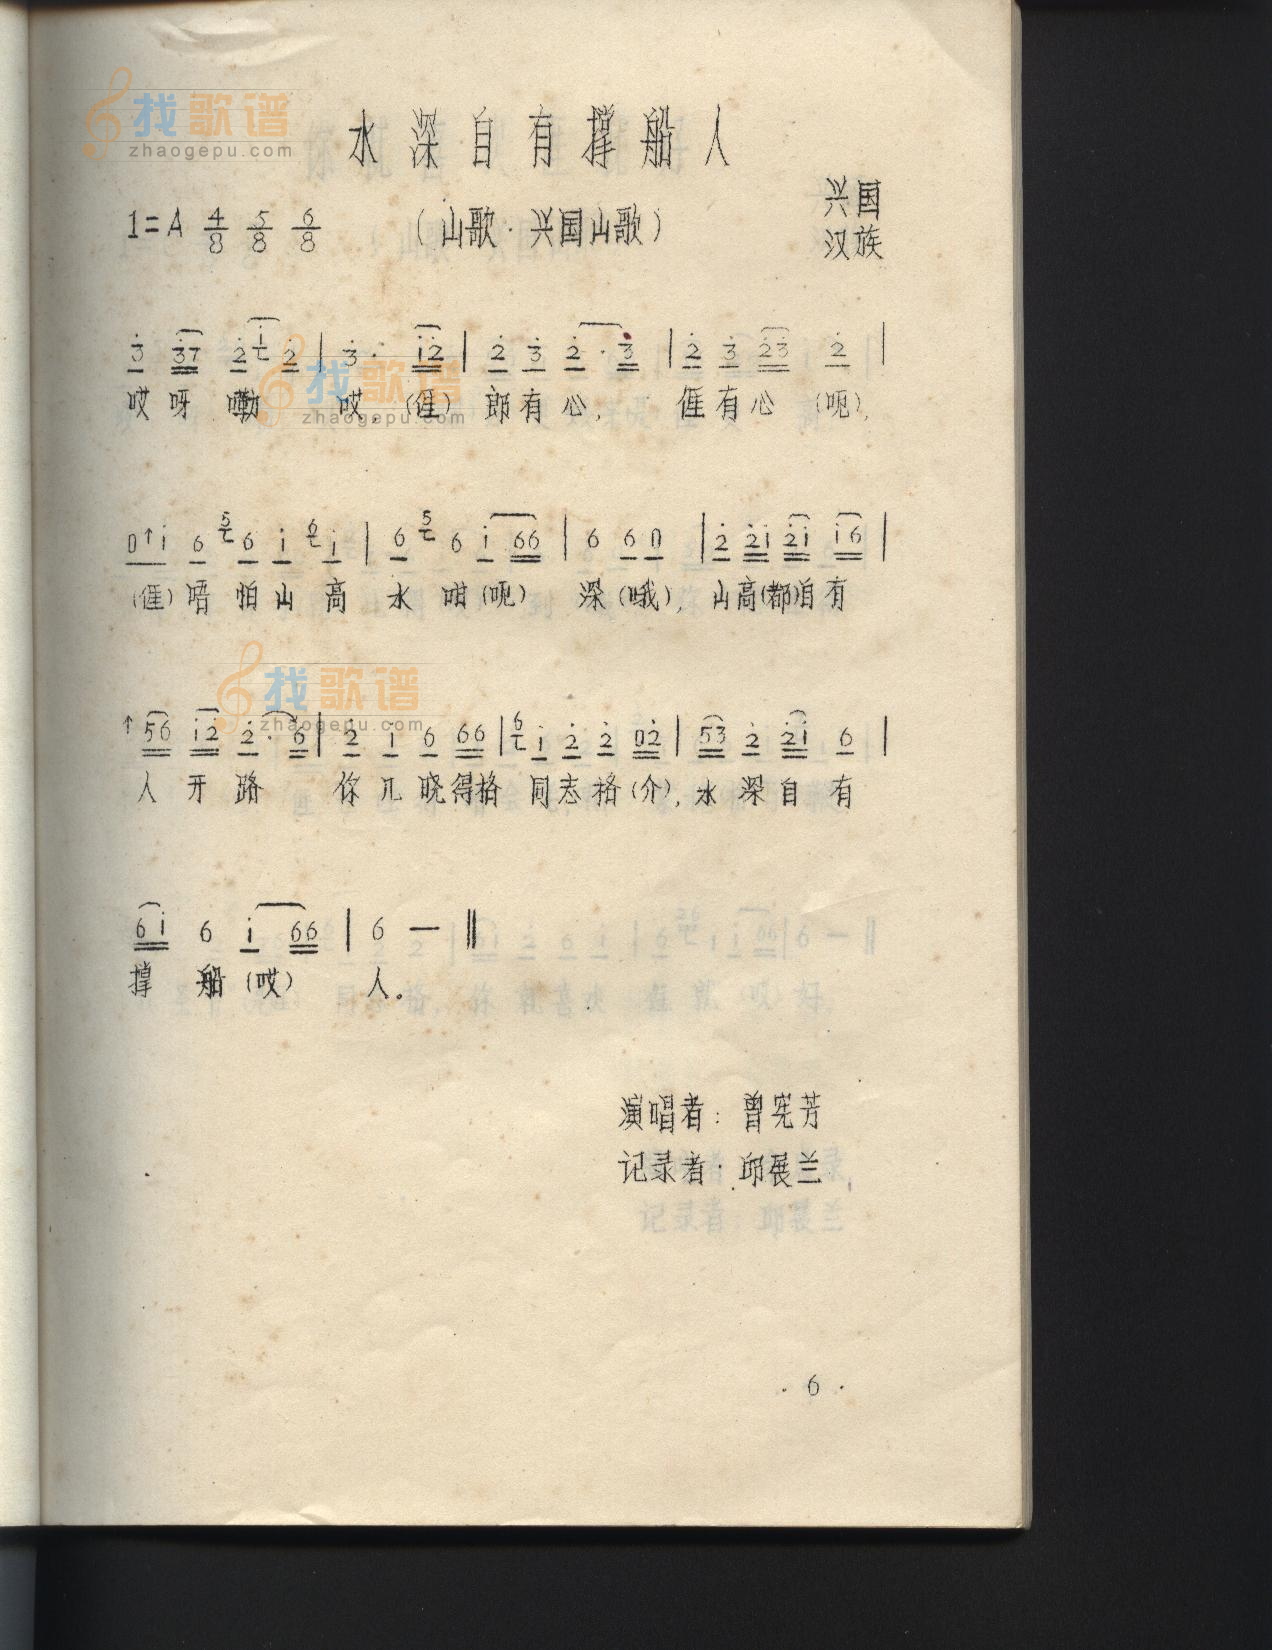 找歌谱
zhaogepu.com
水深自有撑船人
兴国
1=A 4/8 5/8 6/8 (山歌·兴国山歌)
汉族
3 37 2 1 2 | 3· 12 | 2 3 2·3 | 2 3 23 2 |
找歌谱
zhaogepu.com
哎呀嘞 哎,(𠊎)郎有心, 𠊎有心(呃),
0↑i 6 5 6 i 6 i | 6 5 6 i 66 | 6 6 0 | 2 2i 2i i6 |
(𠊎)唔怕山高水咁(呃) 深(哦),山高(都)自有
找歌谱
zhaogepu.com
↑56 i2 2·6 | 2 i 6 66 | 6 i 2 2 02 | 53 2 2i 6 |
人开路 你几晓得格同志格(介),水深自有
6i 6 i 66 | 6 — ‖
撑船(哎) 人。
演唱者:曾宪芳
记录者·邱展兰
·6·